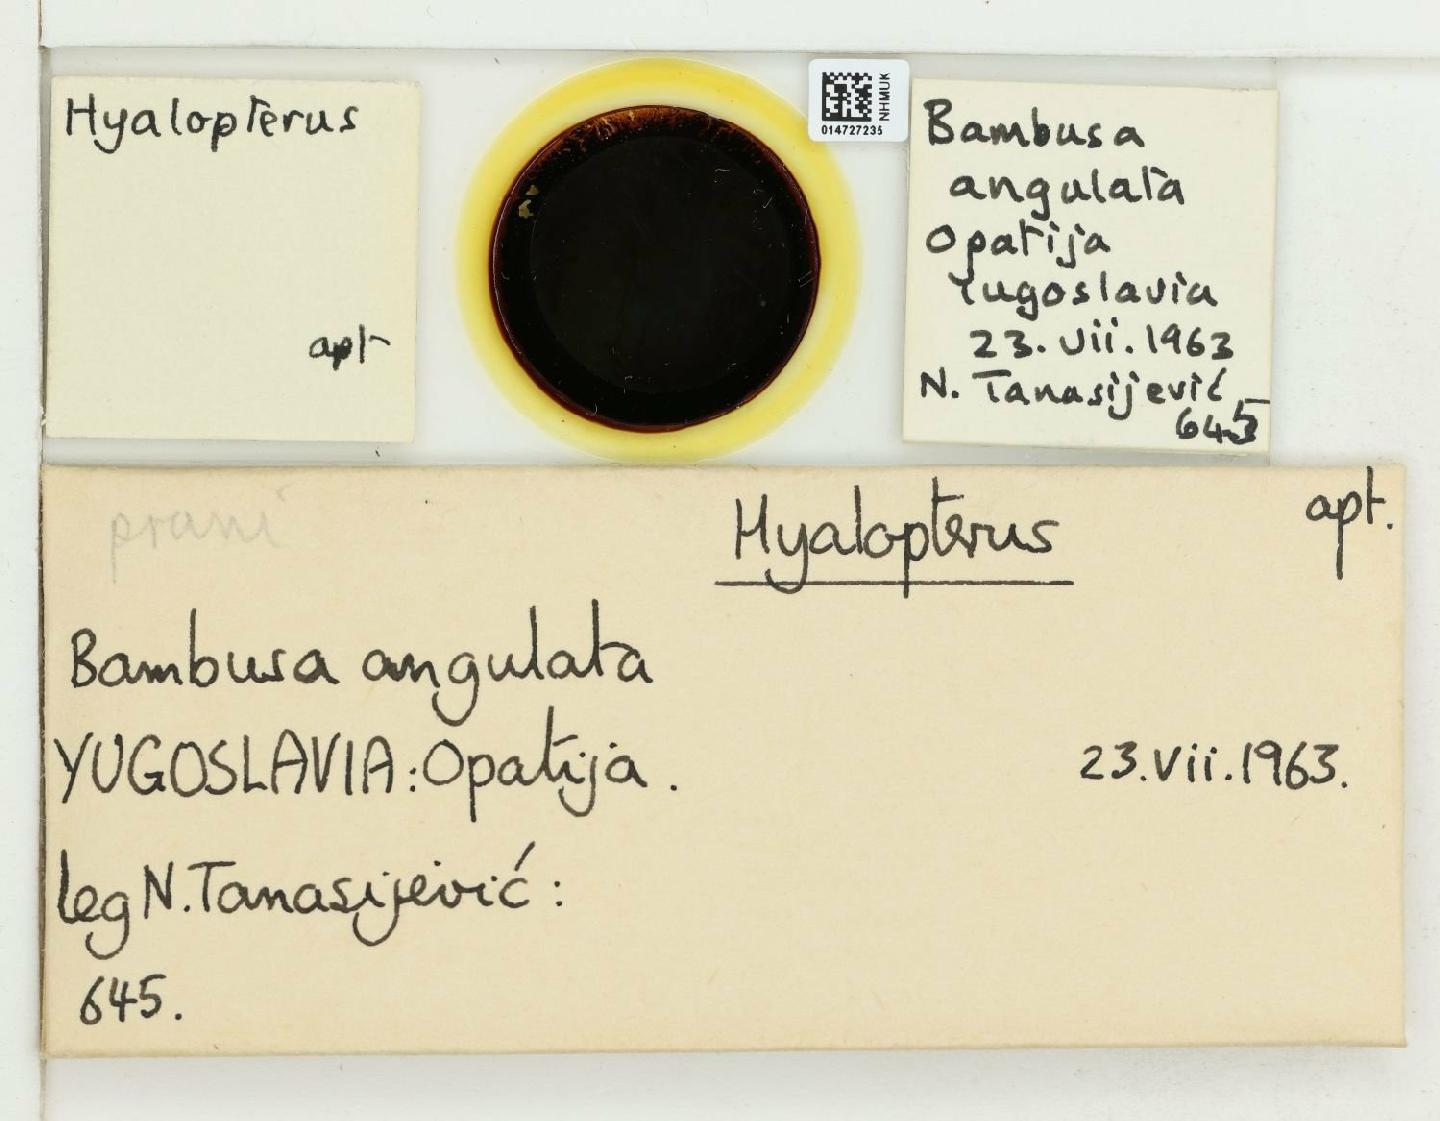 Hyalopterus
apt
NHMUK
014727235
Bambusa
angulata
Opatija
Yugoslavia
23.vii.1963
N. Tanasijević
645
prani
Hyalopterus
apt.
Bambusa angulata
YUGOSLAVIA: Opatija.
23.vii.1963.
leg N. Tanasijević:
645.